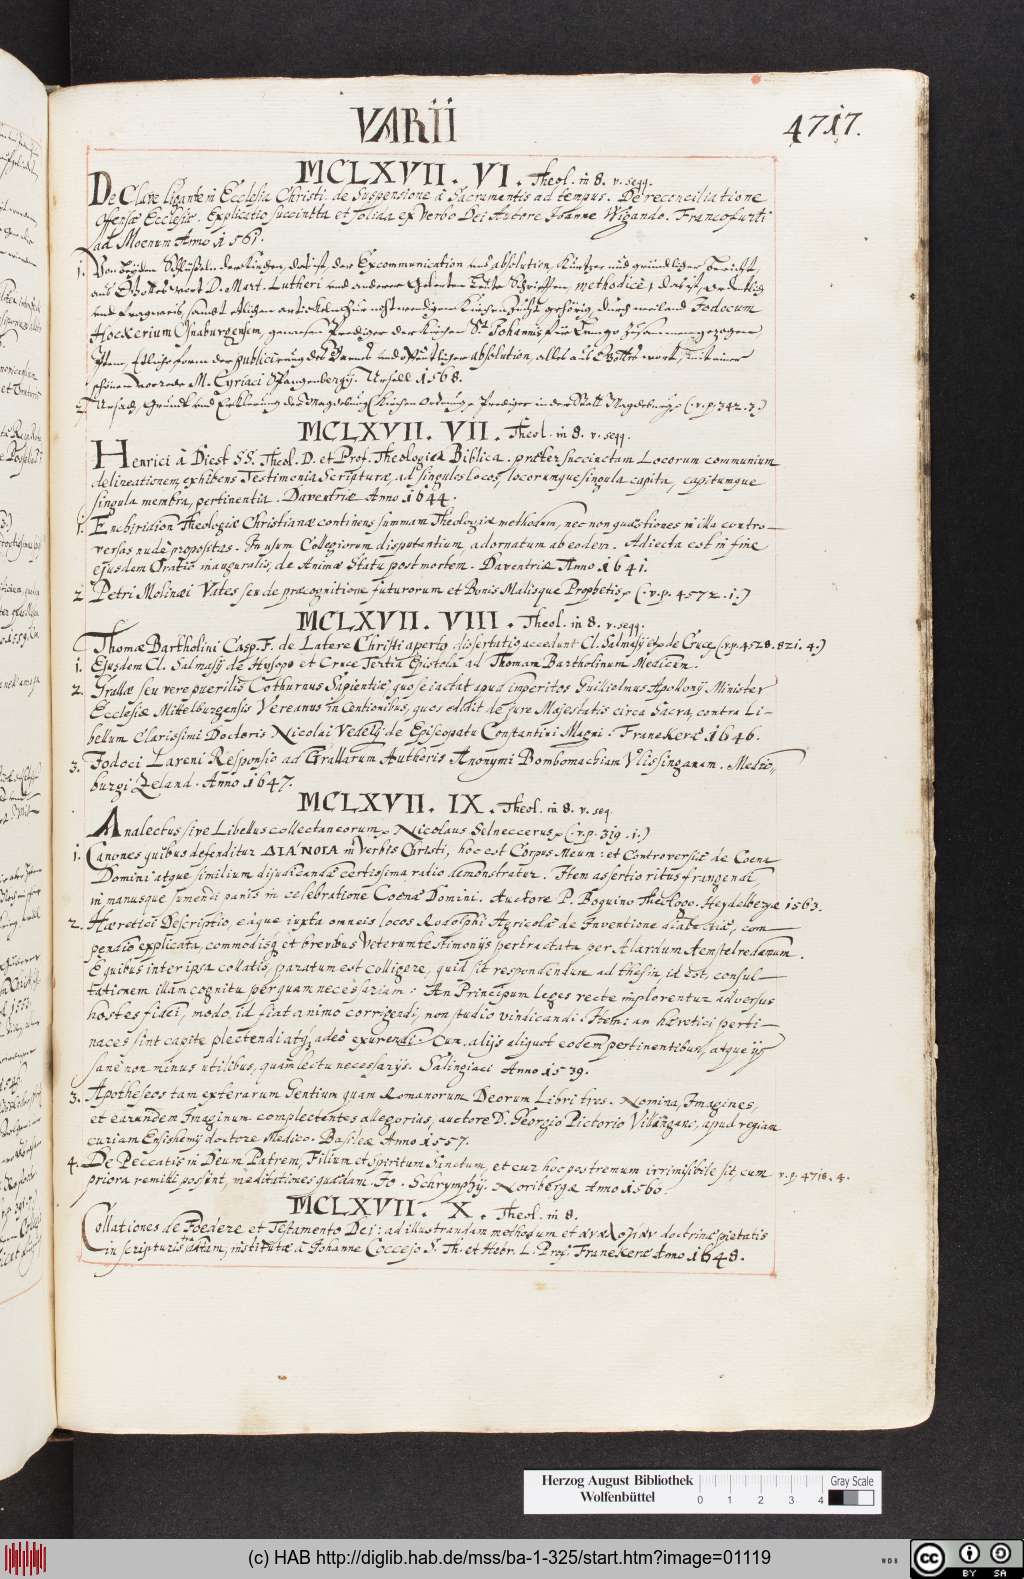 VARII
4717.
MCLXVII. VI. Theol. in 8. v. seqq.
De Clave Ligante in Ecclesia Christi. de Suspensione à Sacramentis ad tempus. De reconciliatione
offensae Ecclesiae. Explicatio succincta et solida ex Verbo Dei Autore Joanne Wigando. Francofurti
ad Moenum Anno 1561.
1. Von beyden Schlüsseln der Kirchen, das ist, der Excommunication und absolution, kurtzer und gründlicher Bericht,
aus Gottes wort D. Mart. Lutheri und anderer Gelerten Leute Schrifften, methodice,
durch weiland Jodocum
Hockerium Osnaburgensem, gewesen Prediger der Kirchen St. Johannis für Lemgo zusammengezogen,
Item, Etliche form der publicierung des Banns und öffentlicher absolution, alles aus Gottes wort, mit einer
schönen vorrede M. Cyriaci Spangenbergij. Ursell 1568.
2. Ursach, Grund und Erklerung der Magdeburg. Kirchen Ordnung Prediger in der Stadt Magdeburg (. v. p. 342. 7.)
MCLXVII. VII. Theol. in 8. v. seqq.
Henrici à Diest SS. Theol. D. et Prof. Theologia Biblica. praeter succinctam Locorum communium
delineationem, exhibens Testimonia Scripturae, ad singulos locos, locorumque singula capita, capitumque
singula membra, pertinentia. Daventriae Anno 1644.
1. Enchiridion Theologiae Christianae continens summam Theologiae methodum, nec non quaestiones in illa contro-
versas nudè propositas. In usum Collegiorum disputantium, adornatum ab eodem. Adiecta est in fine
ejusdem Oratio inauguralis, de Animae Statu post mortem. Daventriae Anno 1641.
2. Petri Molinaei Vates seu de praecognitione futurorum et Bonis Malisque Prophetis (. v. p. 4572. 1.)
MCLXVII. VIII. Theol. in 8. v. seqq.
Thomae Bartholini Casp. F. de Latere Christi aperto dissertatio, accedunt Cl. Salmasij de Cruce (. v. p. 4528. 821. 4.)
1. Ejusdem Cl. Salmasij de Hysopo et Cruce Tertia Epistola ad Thomam Bartholinum Medicum.
2. Grallae seu vere puerilis Cothurnus Sapientiae, quo se iactat apud imperitos Guilliolmus Apollonij Minister
Ecclesiae Mittelburgensis Vereanus in Centionibus, quos edidit de jure Majestatis circa Sacra, contra Li-
bellum Clarissimi Doctoris Nicolai Vedelij de Episcopatu Constantini Magni. Franekerae 1646.
3. Jodoci Lareni Responsio ad Grallarum Authoris Anonymi Bombomachiam Vlissinganam. Medio-
burgi Zeland. Anno 1647.
MCLXVII. IX. Theol. in 8. v. seq.
Analectus sive Libellus collectaneorum Nicolaus Selneccerus (. v. p. 319. 1.)
1. Canones quibus defenditur ΔΙΑΝΟΙΑ in Verbis Christi, hoc est Corpus Meum: et Controversiae de Coena
Domini atque similium dijudicandae certissima ratio demonstratur. Item assertio ritus frangendi
in manusque sumendi panis in celebratione Coenae Domini. Auctore P. Boquino Theologo. Heydelbergae 1563.
2. Haeretici Descriptio, eaque iuxta omneis locos Rodolphi Agricolae de Inventione dialectica, com-
pendio explicata, commodisq. et brevibus Veterum testimonijs pertractata per Alardum Aemstelredanum.
E quibus inter ipsa collatis, paratum est colligere, quid sit respondendum ad thesin, id est, consul-
tationem illam cognitu perquam necessariam: An Principum leges recte implorentur adversus
hostes fidei, modo, id fiat animo corrigendi, non studio vindicandi. Item: an haeretici perti-
naces sint capite plectendi atq. adeò exurendi. Cum alijs aliquot eodem pertinentibus, atque ijs
sanè non minus utilibus, quam lectu necessarijs. Salingiaci Anno 1539.
3. Apotheseos tam exterarum Gentium quam Romanorum Deorum Libri tres. Nomina, Imagines,
et earundem Imaginum complectentes allegorias, auctore D. Georgio Pictorio Villingano, apud regiam
curiam Ensishemij doctore Medico. Basileae Anno 1557.
4. De Peccatis in Deum Patrem, Filium et Spiritum Sanctum, et cur hoc postremum irrimisibile sit, cum v. p. 4718. 4.
priora remitti possint, meditationes quaedam. Jo. Schrymphij. Noribergae Anno 1560.
MCLXVII. X. Theol. in 8.
Collationes de Foedere et Testamento Dei: ad illustrandam methodum et αναλογιαν doctrinae pietatis
in scripturis traditam, institutae à Johanne Coccejo S. Th. et Hebr. L. Prof. Franekerae Anno 1648.
Herzog August Bibliothek
Wolfenbüttel
0 1 2 3 4
Gray Scale
(c) HAB http://diglib.hab.de/mss/ba-1-325/start.htm?image=01119
WDB
cc BY SA